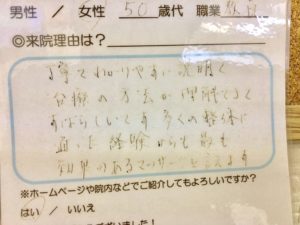 男性 / 女性 50歳代 職業
◎来院理由は？
丁寧でわかりやすい説明で
治療の方法が理解でき
すばらしいです 多くの整体に
通った経験からも最も
効果のあるマッサージと言えます
※ホームページや院内などでご紹介してもよろしいですか？
はい / いいえ
ございました！